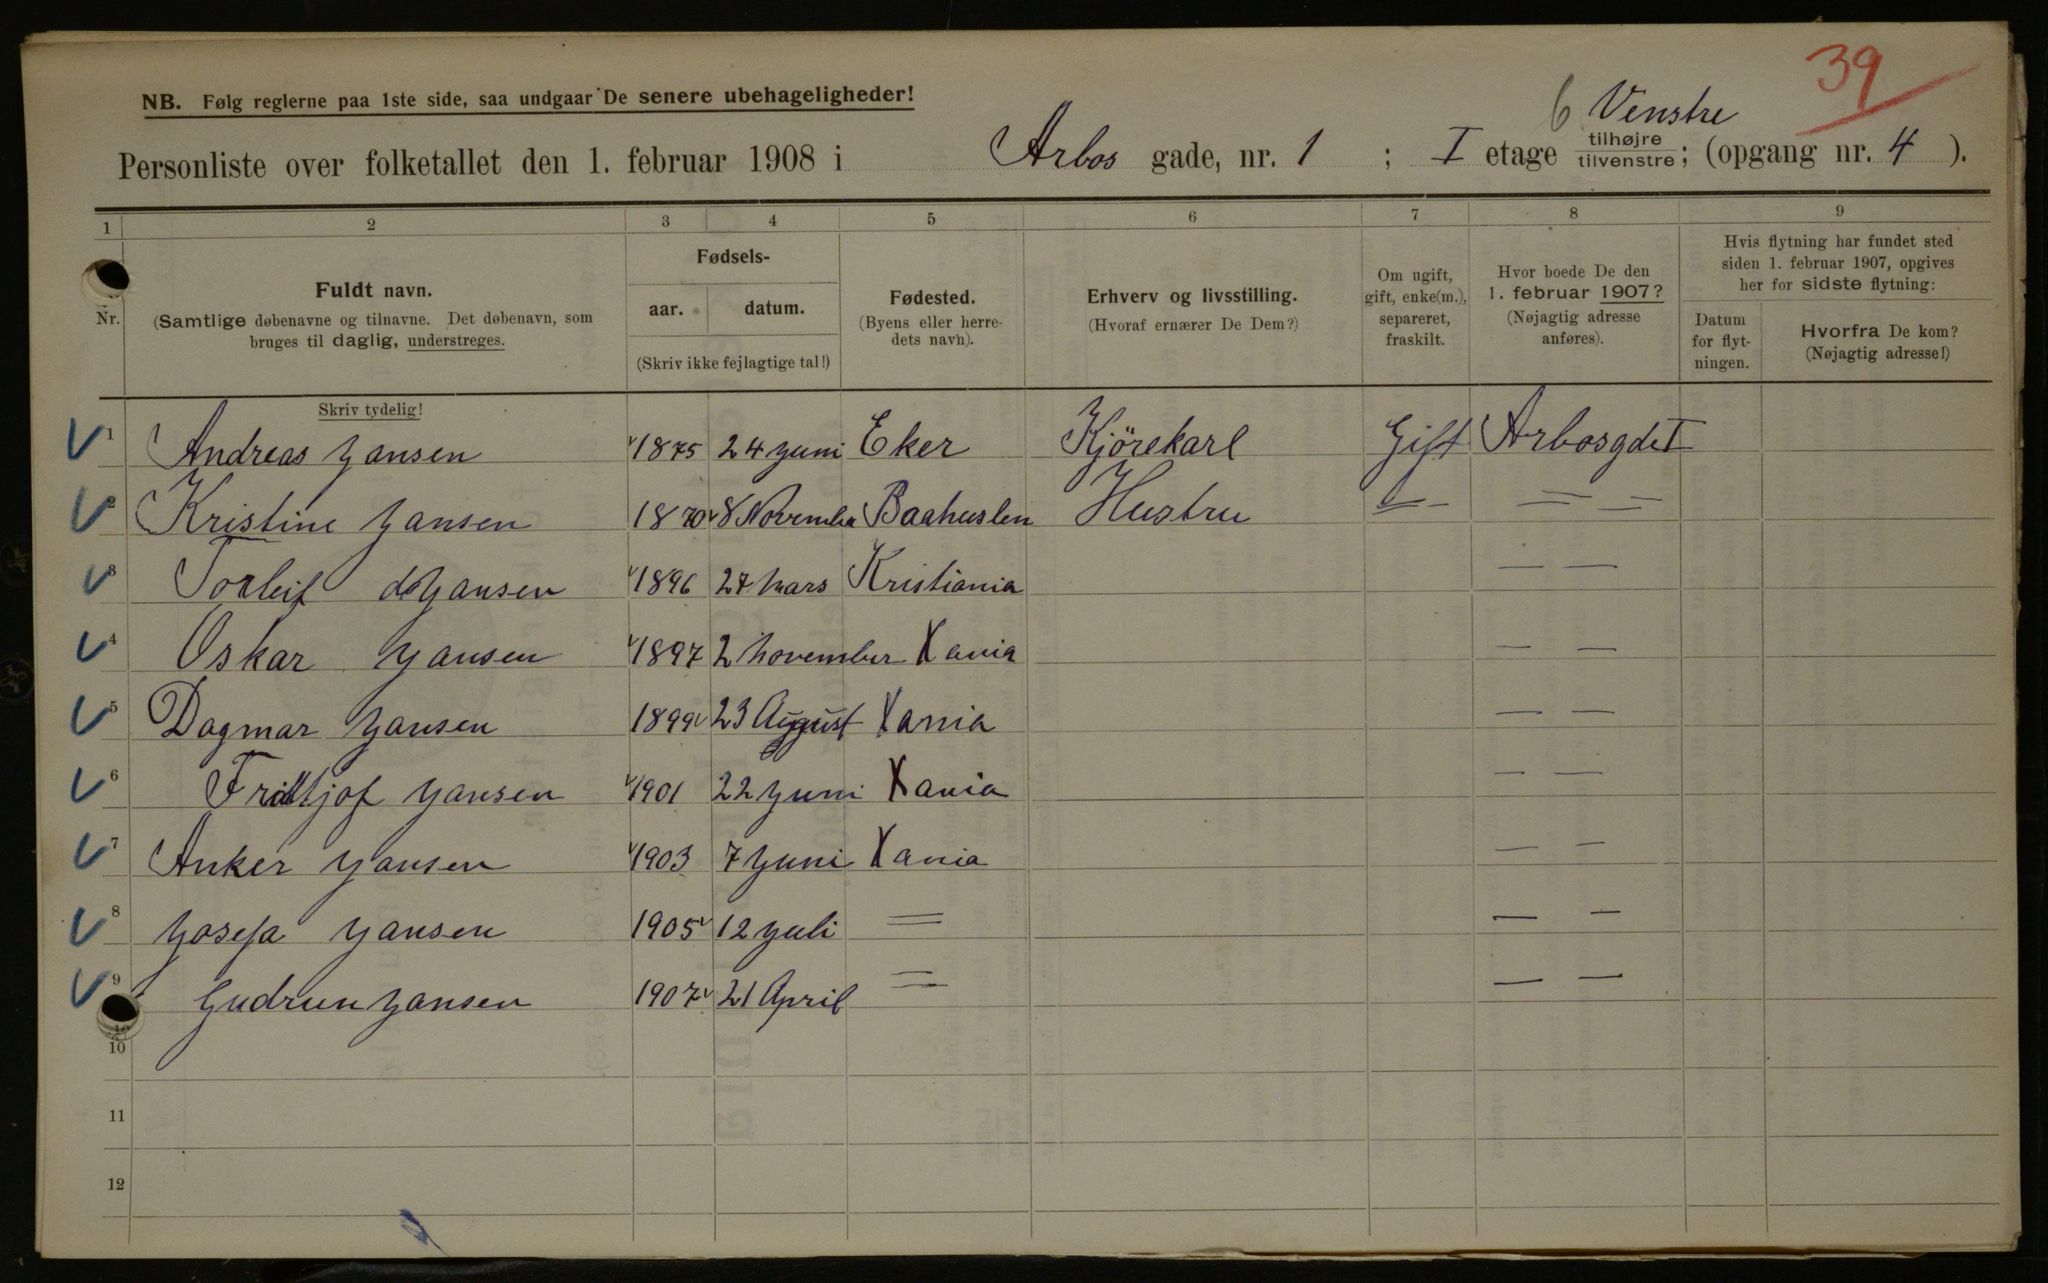 39
NB. Følg reglerne paa 1ste side, saa undgaar De senere ubehageligheder!
6 Venstre
Personliste over folketallet den 1. februar 1908 i Arbos gade, nr. 1 ; I etage tilhøjre tilvenstre; (opgang nr. 4 ).
1 2 3 4 5 6 7 8 9
Nr.
Fuldt navn.
(Samtlige døbenavne og tilnavne. Det døbenavn, som
bruges til daglig, understreges.
Fødsels-
aar. datum.
(Skriv ikke fejlagtige tal!)
Fødested.
(Byens eller herre-
dets navn).
Erhverv og livsstilling.
(Hvoraf ernærer De Dem?)
Om ugift,
gift, enke(m.),
separeret,
fraskilt.
Hvor boede De den
1. februar 1907?
(Nøjagtig adresse
anføres).
Hvis flytning har fundet sted
siden 1. februar 1907, opgives
her for sidste flytning:
Datum
for flyt-
ningen.
Hvorfra De kom?
(Nøjagtig adresse!)
Skriv tydelig!
1 Andreas Jansen 1875 24 Juni Eker Kjörekarl Gift Arbosgd I
2 Kristine Jansen 1870 8 November Baahuslen Hustru — — —
3 Torleif Jansen 1896 27 Mars Kristiania — —
4 Oskar Jansen 1897 2 November Xania — —
5 Dagmar Jansen 1899 23 August Xania — —
6 Fridtjof Jansen 1901 22 Juni Xania — —
7 Anker Jansen 1903 7 Juni Xania — —
8 Josefa Jansen 1905 12 Juli = — —
9 Gudrun Jansen 1907 21 April = — —
10
11
12